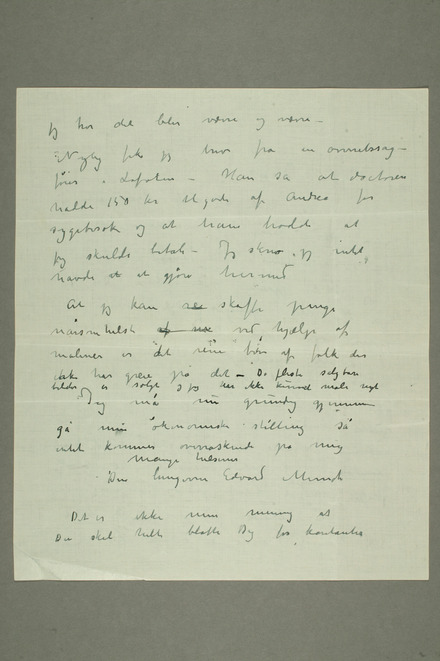 jeg tror det blir værre og værre –
Nylig fik jeg brev fra en overretssag-
fører i Lofoten – Han sa at doctoren
havde 150 kr tilgode af Andrea for
sygebesøk og at han trodde at
jeg skulde betale – Jeg skrev jeg intet
havde at gjøre hermed
At jeg kan skaffe penge
nårsomhelst ved hjælp af
malerier er det rene af folk der
ikke har greie på det – De fleste salgbare
bilder er solgt og jeg har ikke kunnet male nyt
Jeg må nu grundig gjennem
gå min økonomiske stilling så
intet kommer overraskende på mig
Mange hilsener
Din hengivne Edvard Munch
Det er ikke min mening at
Du skal helt blotte Dig for kontanter